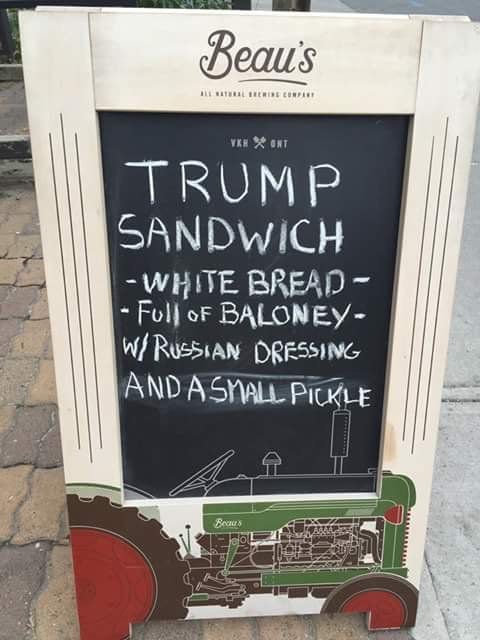 Beau's
ALL NATURAL BREWING COMPANY
VKH ONT
TRUMP
SANDWICH
-WHITE BREAD-
-Full OF BALONEY-
W/ RUSSIAN DRESSING
AND A SMALL PICKLE
Beau's